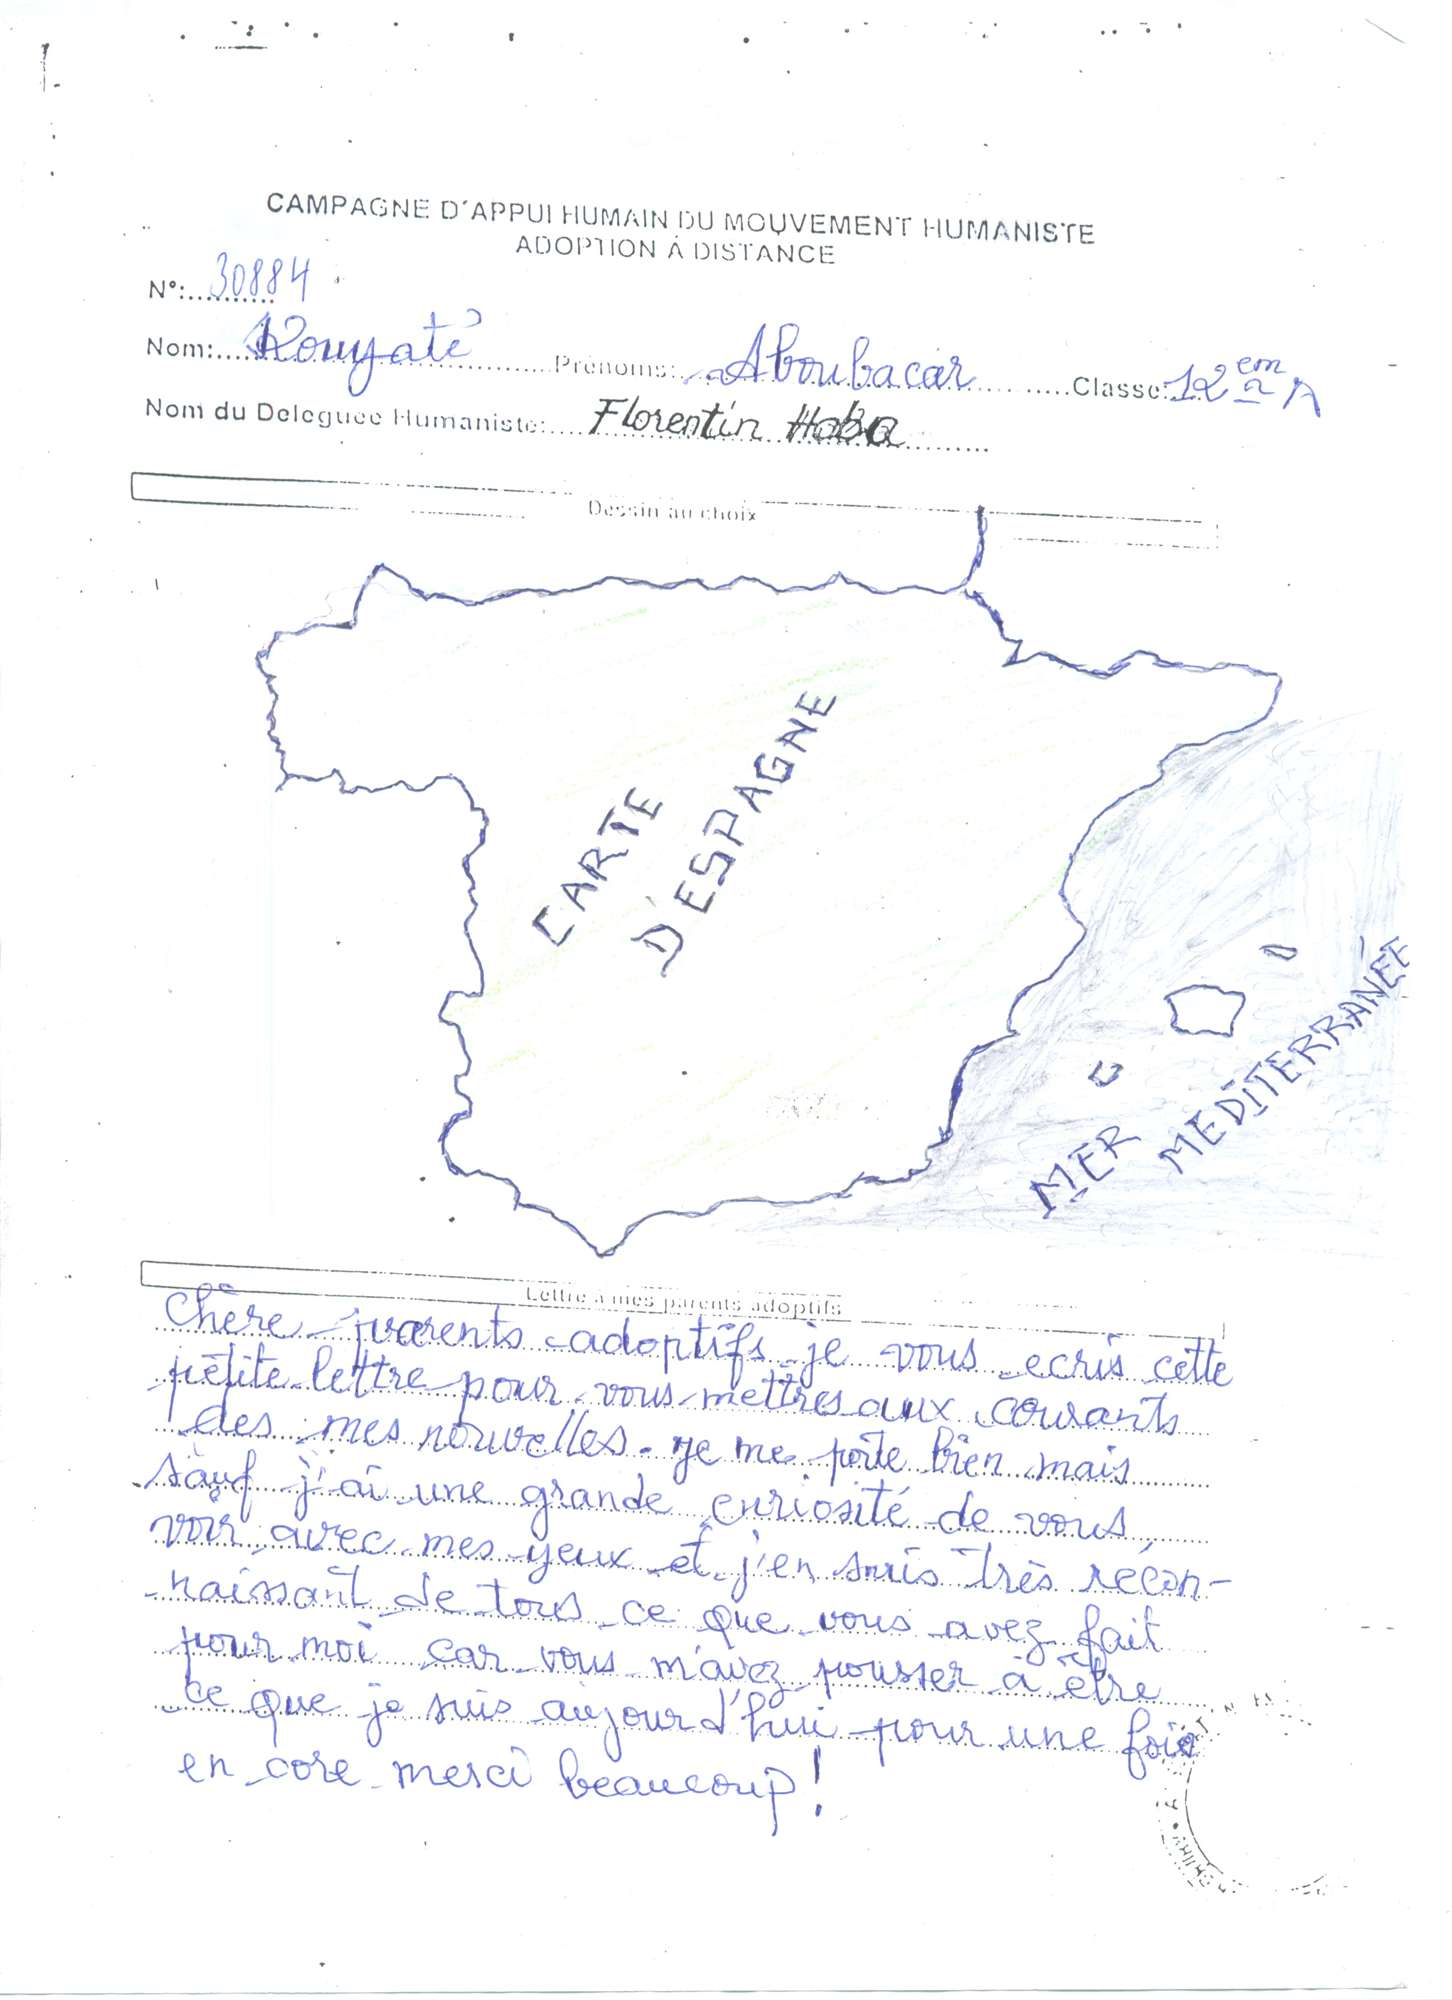 CAMPAGNE D'APPUI HUMAIN DU MOUVEMENT HUMANISTE
ADOPTION À DISTANCE
N°: 30884
Nom: Kouyaté Prénoms: Aboubacar Classe: 12 em A
Nom du Deleguee Humaniste: Florentin Haba
Dessin au choix
CARTE
D'ESPAGNE
MER
MEDITERRANÉE
Lettre a mes parents adoptifs
Chère parents adoptifs je vous ecris cette
pétite lettre pour vous mettres aux courants
des mes nouvelles. je me porte bien mais
sauf j'ai une grande curiosité de vous
voir avec mes yeux et j'en suis très récon-
naissant de tous ce que vous avez fait
pour moi car vous m'avez pousser à être
ce que je suis aujourd'hui pour une fois
en core merci beaucoup!